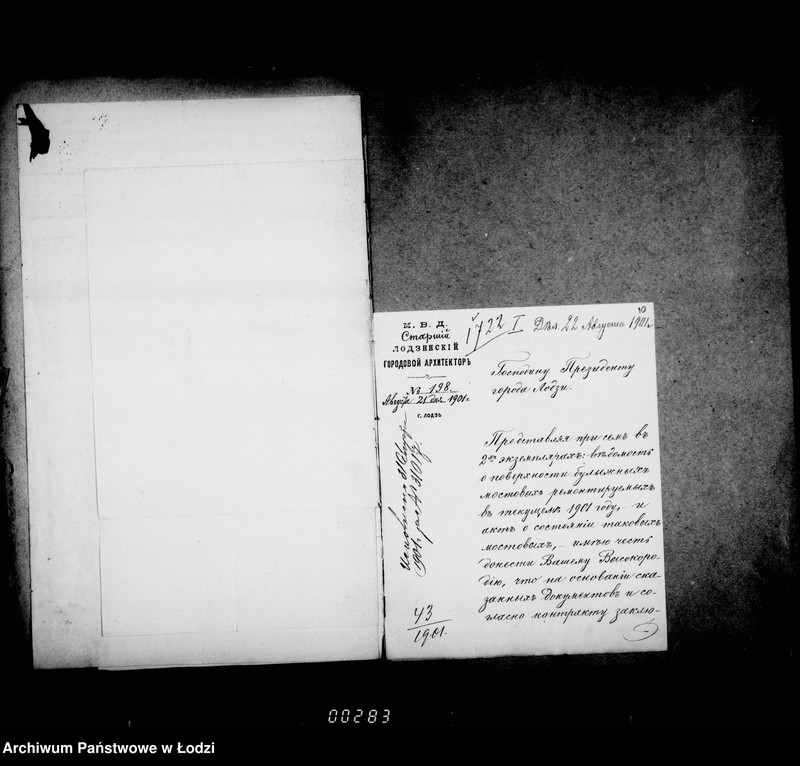 10
М. В. Д.
Старшій
ЛОДЗИНСКІЙ
ГОРОДОВОЙ АРХИТЕКТОРЪ
№ 198.
Августа 21 дня 1901 г.
г. ЛОДЗЬ
1722 I
22 Августа 1901
Господину Президенту
города Лодзи.
Представляя при семъ въ
2хъ экземплярахъ: вѣдомость
о поверхности булыжныхъ
мостовыхъ ремонтируемыхъ
въ текущемъ 1901 году, – и
актъ о состояніи таковыхъ
мостовыхъ, – имѣю честь
донести Вашему Высокоро-
дію, что на основаніи ска-
занныхъ документовъ и со-
гласно контракту заклю-
Исполнено 31 Августа
1901 г. за №
43
1901.
00283
Archiwum Państwowe w Łodzi